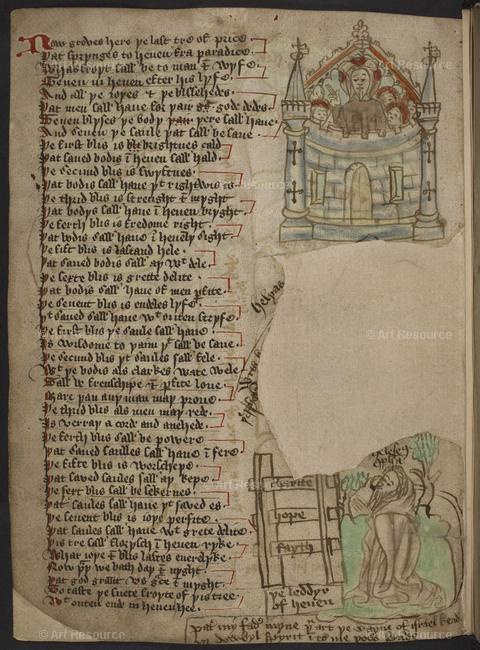 Now groves here þe last tre of price
þat sprynges to heuen fra paradice
Whas froyt sall be to man & wyfe
Seuen in heuen efter his lyfe
And all þe ioyes & þe blissehedes
þat men sall haue for þair gode dedes
Seuen blysses þe body þere sall haue
And seuen þe saule þat sall be saue
þe first blis is brightnes cald
þat saued bodis i heuen sall hald
þe secund blis is swyftnes
þat bodis sall haue þt rightwis is
þe thrid blis is strenght & myght
þat bodys sall haue i heuen bryght
þe ferth blis is fredome right
þat bodis sall haue i heuenly sight
þe fift blis is lastand hele
þat saued bodis sall ay wt dele
þe sexte blis is grette delite
þat bodis sall haue of men
þe seuent blis is endeles lyfe
þt saued sall haue wt outen stryfe
þe first blis þe saule sall haue
Is wisdome to þaim þt sall be saue
þe secund blis þt saules sall fele
Wt þe bodis als clerkes wate wele
Sall be frenschipe & love
Mare þan any man may proue
þe thrid blis als men may red
Is verray acord and anehede
þe ferth blis sall be powere
þat saued saulles sall haue i fere
þe fifte blis is worschepe
þat saved saules sall ay kepe
þe sext blis sall be sekernes
þat saules sall haue þt saved es
þe seuent blis is ioye perfite
þat saules sall haue wt grete delite
þis tre sall florysch i heuen ryke
What ioye & blis lastes euerlyke
Now we bath day & nyght
þat god graunt vs grace & myght
To taste þe suete froyte of þis tree
Wt outen end in heuen hee
charite
hope
fayth
þe leddyr
of heuen
© Art Resource